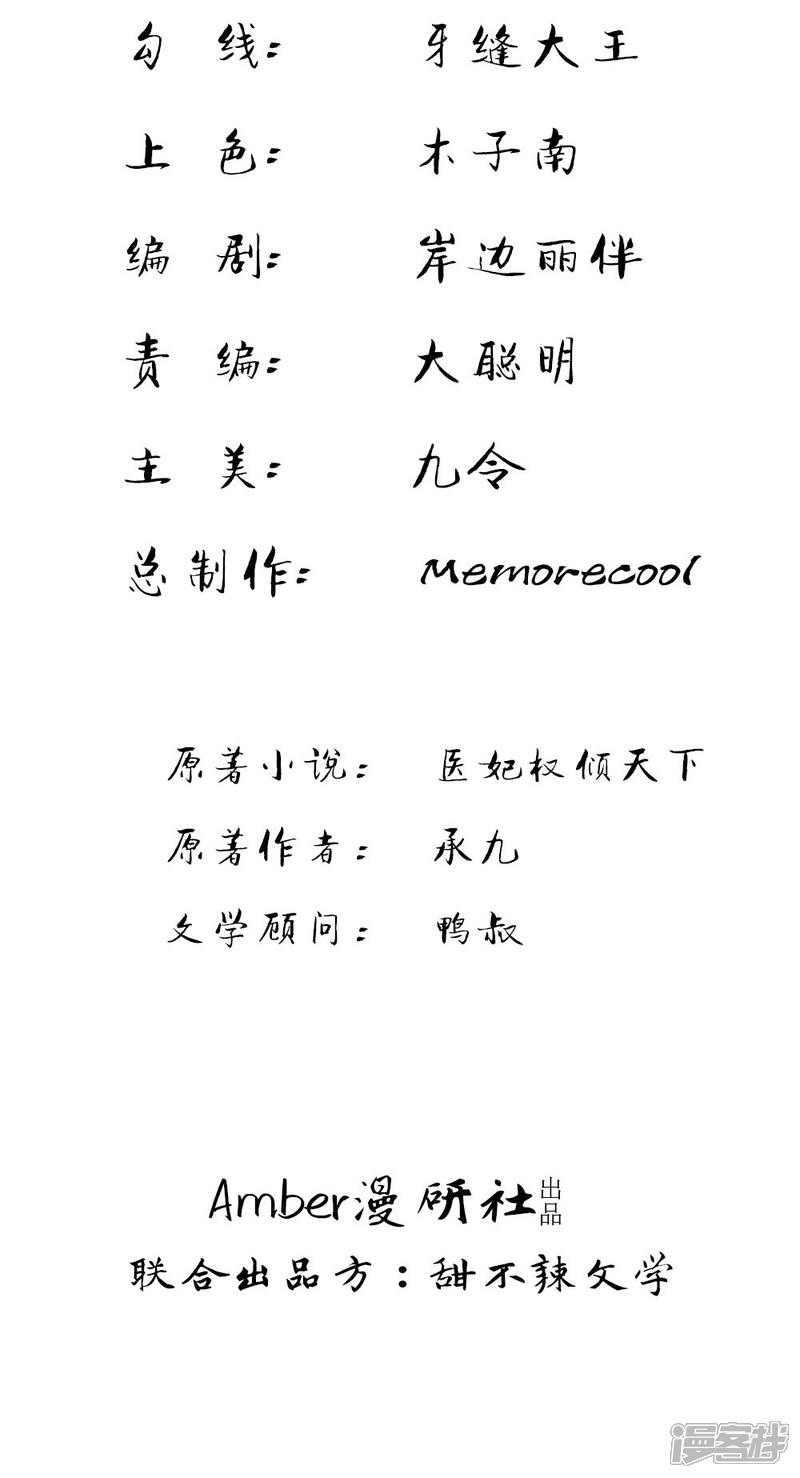 勾 线： 牙缝大王
上 色： 木子南
编 剧： 岸边丽伴
责 编： 大聪明
主 美： 九令
总制作： Memorecool
原著小说： 医妃权倾天下
原著作者： 承九
文学顾问： 鸭叔
Amber漫研社出品
联合出品方：甜不辣文学
漫客栈